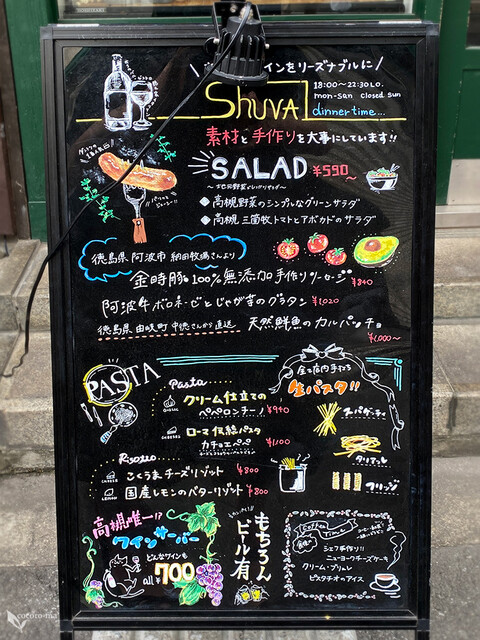 インをリーズナブルに
Shuva
18:00〜22:30 L.O.
mon-san closed sun
dinner time...
素材と手作りを大事にしています!!
SALAD ¥590〜
◆高槻野菜のシンプルなグリーンサラダ
◆高槻三箇牧トマトとアボカドのサラダ
徳島県 阿波市 納田牧場さんより
金時豚100%無添加手作りソーセージ ¥840
阿波牛ボロネーゼとじゃが芋のグラタン ¥1,020
徳島県由岐町 中徳さんから直送 天然鮮魚のカルパッチョ
¥1,000〜
PASTA
Pasta
クリーム仕立ての
ペペロンチーノ ¥940
ローマ伝統パスタ
カチョエペペ ¥1,100
全て店内手打ち
生パスタ!!
スパゲッティ
タリアテレ
フジッリ
Risotto
CHEESE
こくうまチーズリゾット ¥800
LEMON
国産レモンのバターリゾット ¥800
高槻唯一!?
ワインサーバー
どんなワインも
all ¥700
もちろん
ビール有
Coffee Time
シェフ手作り!!
ニューヨークチーズケーキ
クリーム・ブリュレ
ピスタチオのアイス